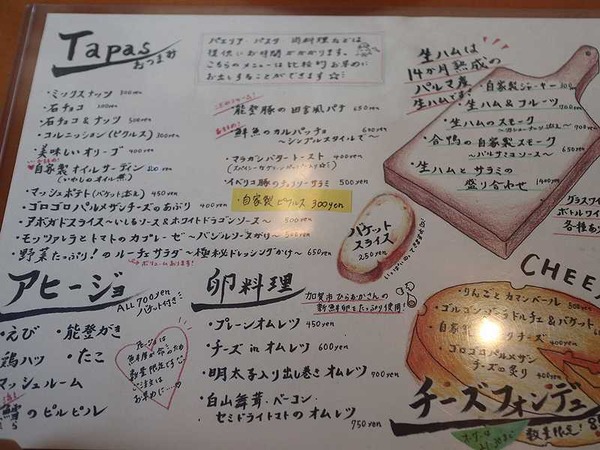 Tapas おつまみ
パエリア・パスタ 肉料理などは
提供にお時間がかかります。
こちらのメニューは比較的お早めに
お出しすることができます☆
・ミックスナッツ 300yen
・石チョコ 300yen
・石チョコ&ナッツ 500yen
・コルニッション(ピクルス) 300yen
・美味しいオリーブ 400yen
・自家製オイルサーディン
(いわしのオイル煮)
・マッシュポテト(バケット添え) 450yen
・ゴロゴロパルメザンチーズのあぶり 400yen
・アボガドスライス〜いしるソース&ホワイトドラゴンソース〜 500yen
・モッツァレラとトマトのカプレーゼ〜バジルソースがけ〜
・野菜たっぷり!のルーチェサラダ〜極秘ドレッシングかけ〜 650yen
ボリュームあります!
・能登豚の田舎風パテ 650yen
・鮮魚のカルパッチョ 650yen
〜シンプルスタイルで〜
・マラガンバタートースト 400yen
・イベリコ豚のチョリソーサラミ 500yen
・自家製ピクルス 300yen
バケット
スライス
250yen
生ハムは
14か月熟成の
パルマ産
生ハムです!
・自家製ジャーキー
・生ハム&フルーツ 700yen
・生ハムのスモーク 700yen
・合鴨の自家製スモーク
〜バルサミコソース〜 650yen
・生ハムとサラミの
盛り合わせ 1400yen
グラスワイ
ボトルワイ
各種あ
アヒージョ
ALL 700yen
バケット付き
・えび ・能登がき
鶏ハツ ・たこ
マッシュルーム
のピルピル
卵料理
加賀市ひらおかさんの
新鮮卵をたっぷり使用!
・プレーンオムレツ 450yen
・チーズ in オムレツ 600yen
・明太子入り出し巻きオムレツ 700yen
・白山舞茸・ベーコン・
セミドライトマトのオムレツ
750yen
CHEE
・りんごとカマンベール 500yen
・ゴルゴンゾーラドルチェ&バケット
・自家製
チーズ 400yen
・ゴロゴロパルメザン
チーズの炙り 400yen
チーズフォンデュ
数量限定!